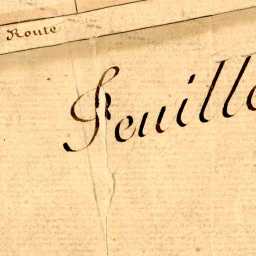 Route
Feuille